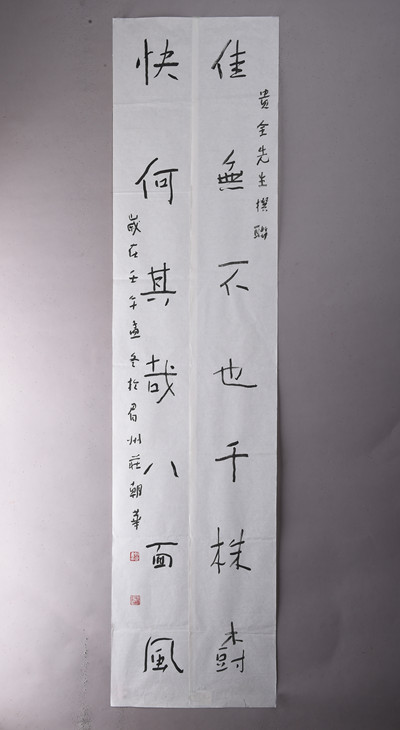 貴全先生撰聯
佳無不也千株樹
快何其哉八面風
歲在壬午孟冬於眉州莊朝華